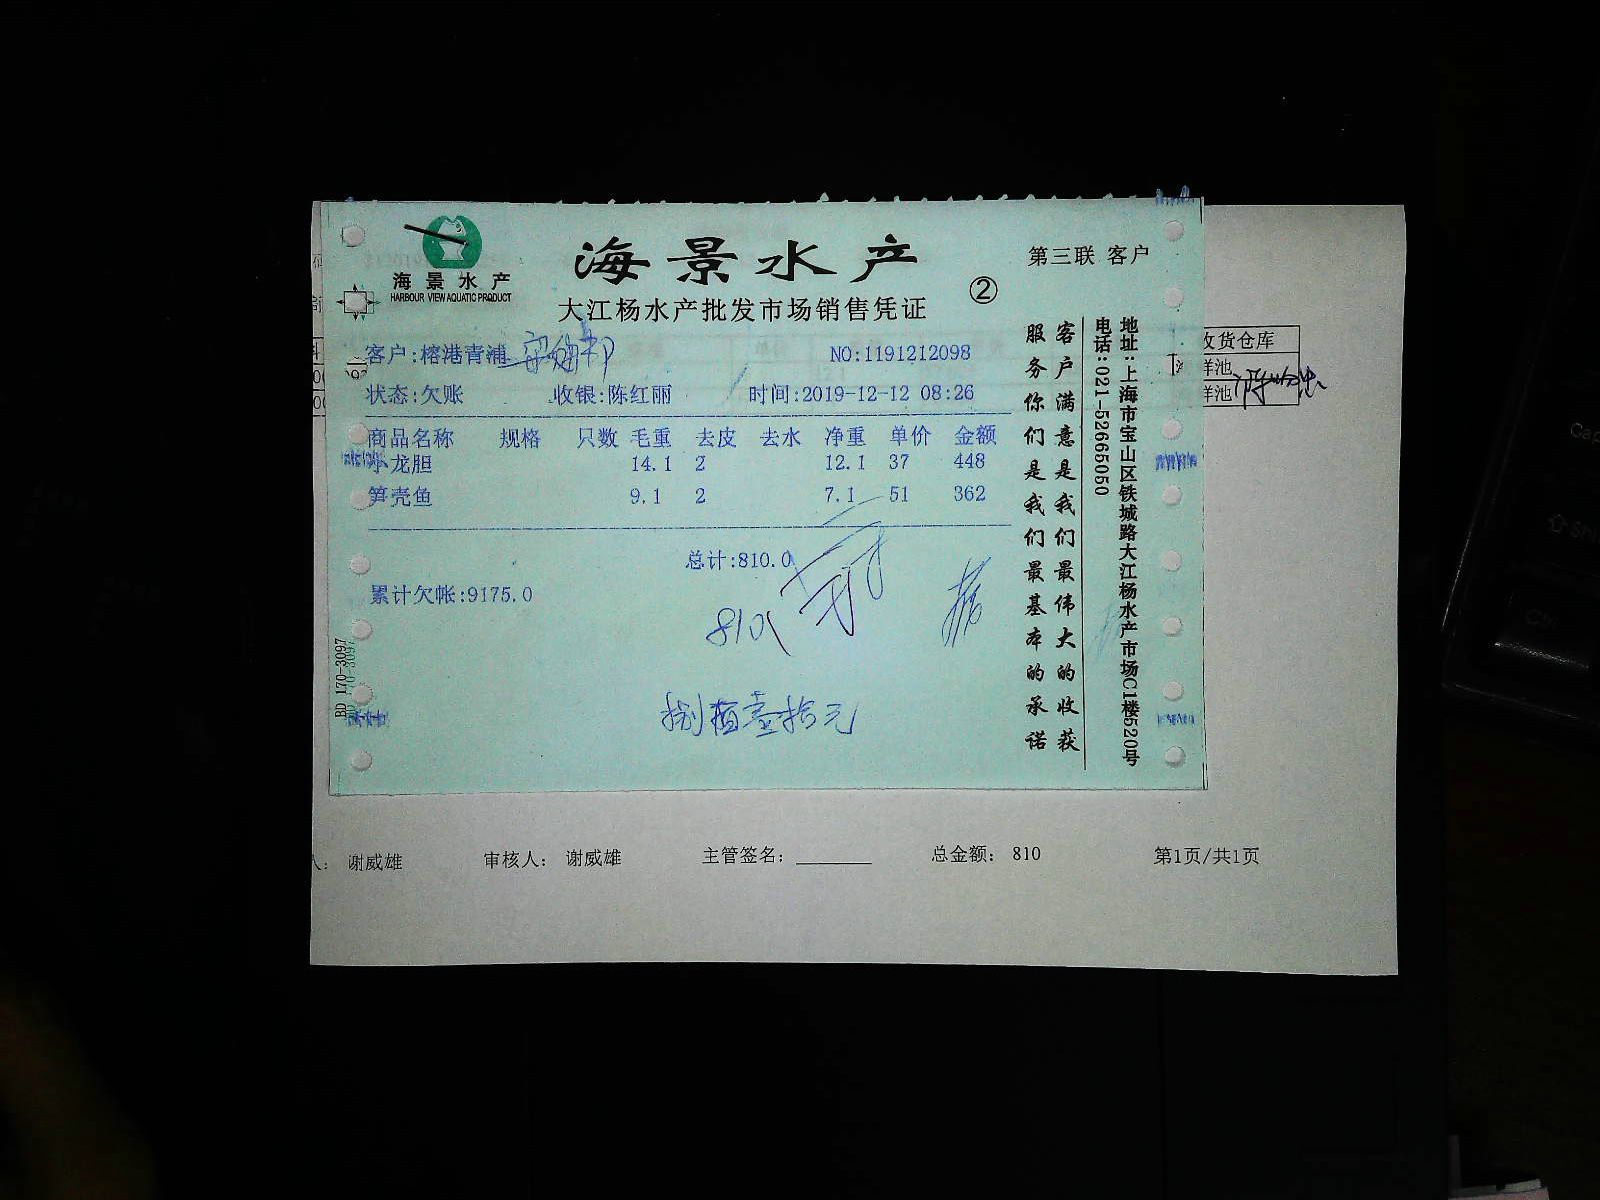 海景水产
HARBOUR VIEW AQUATIC PRODUCT
海景水产
大江杨水产批发市场销售凭证
②
第三联 客户
客户:榕港青浦
NO:1191212098
状态:欠账 收银:陈红丽 时间:2019-12-12 08:26
商品名称 规格 只数 毛重 去皮 去水 净重 单价 金额
小龙胆 14.1 2 12.1 37 448
笋壳鱼 9.1 2 7.1 51 362
总计:810.0
累计欠帐:9175.0
810
捌佰壹拾元
客户满意是我们最伟大的收获
服务你们是我们最基本的承诺
地址:上海市宝山区铁城路大江杨水产市场C1楼520号
电话:021-52665050
BD 170-3097
收货仓库
鲜池
鲜池
谢威雄 审核人: 谢威雄 主管签名: 总金额: 810 第1页/共1页